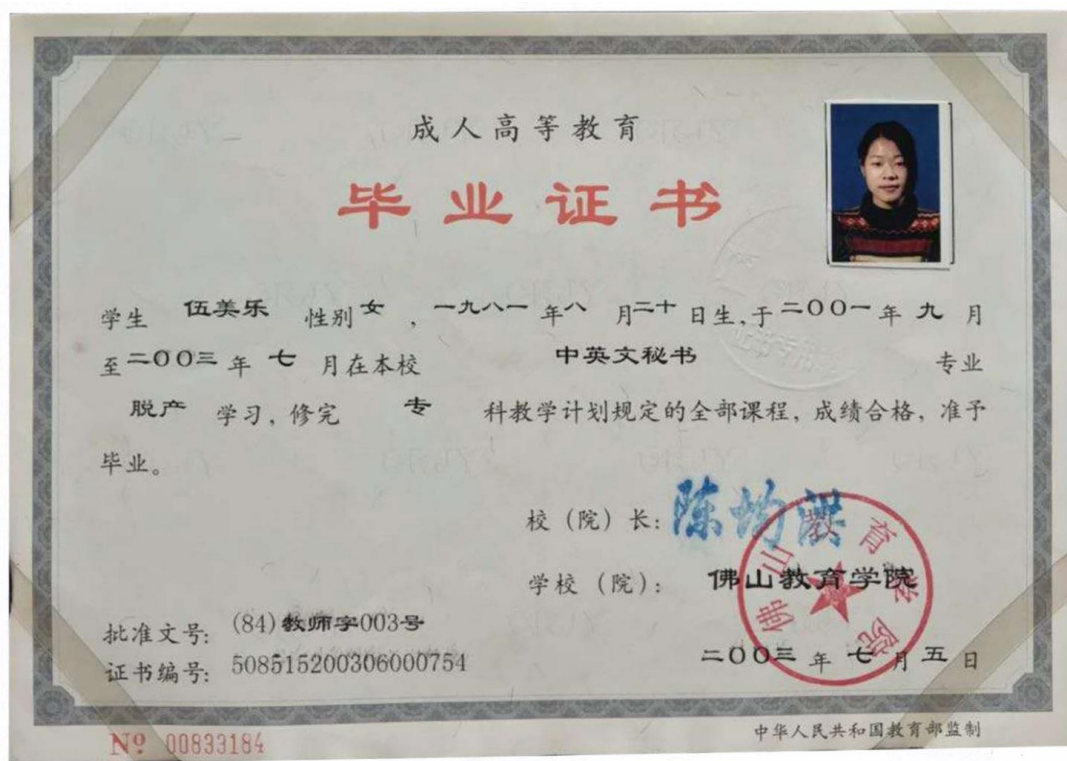 成人高等教育
毕业证书
学生 伍美乐 性别 女 ，一九八一 年 八 月 二十 日生，于 二00一 年 九 月
至 二00三 年 七 月在本校 中英文秘书 专业
脱产 学习，修完 专 科教学计划规定的全部课程，成绩合格，准予
毕业。
校（院）长：陈均洪
学校（院）：佛山教育学院
佛山教育学院
批准文号：(84)教师字003号
证书编号：508515200306000754
二00三 年 七 月 五 日
№ 00833184
中华人民共和国教育部监制